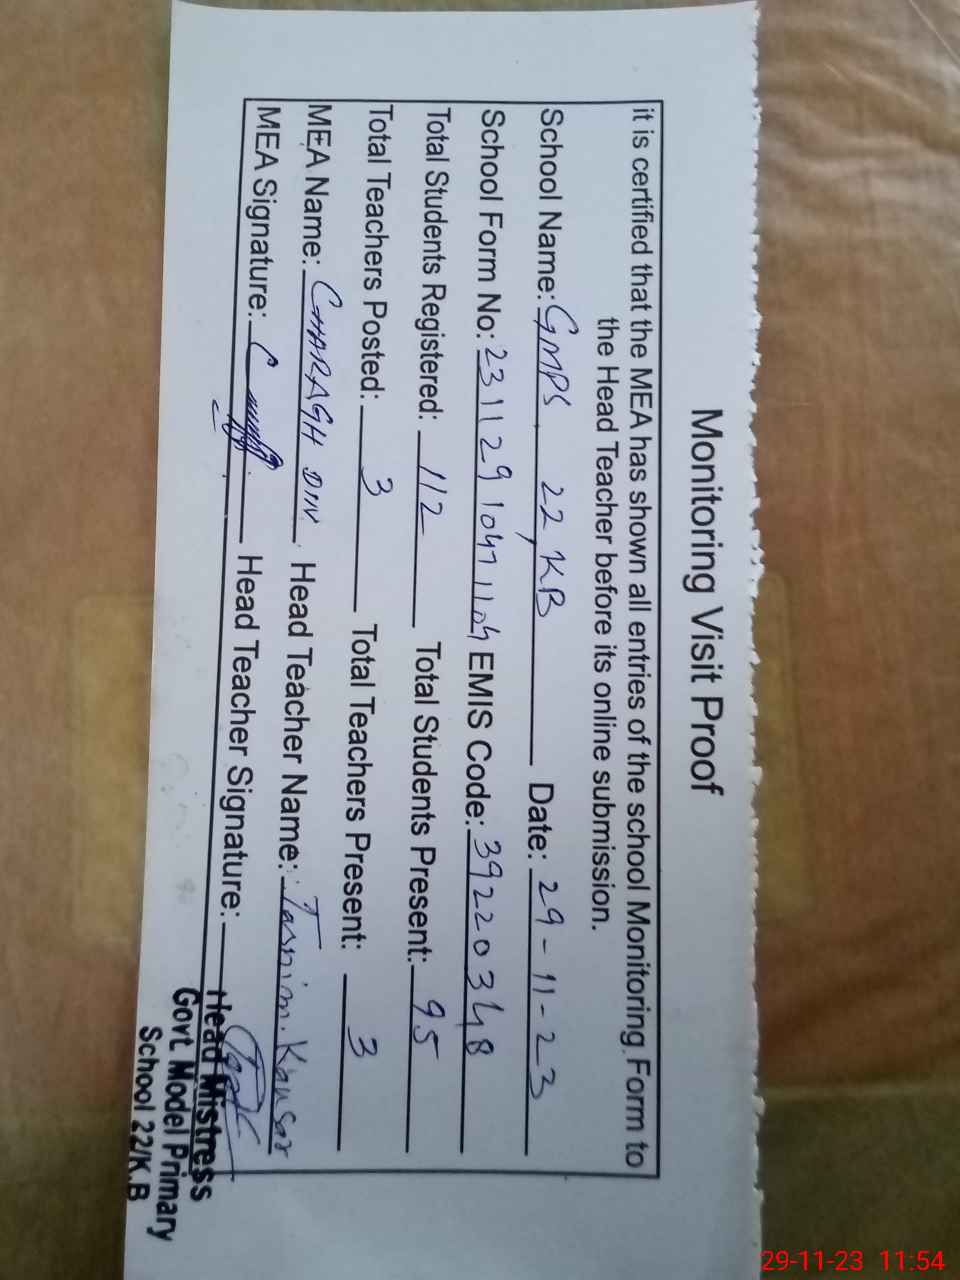 Monitoring Visit Proof
it is certified that the MEA has shown all entries of the school Monitoring Form to
the Head Teacher before its online submission.
School Name: GMPS 22/KB Date: 29-11-23
School Form No: 23112910471104 EMIS Code: 39220348
Total Students Registered: 112 Total Students Present: 95
Total Teachers Posted: 3 Total Teachers Present: 3
MEA Name: CHARAGH DIN Head Teacher Name: Tasnim Kausar
MEA Signature: Head Teacher Signature:
Head Mistress
Govt. Model Primary
School 22/K.B
29-11-23 11:54